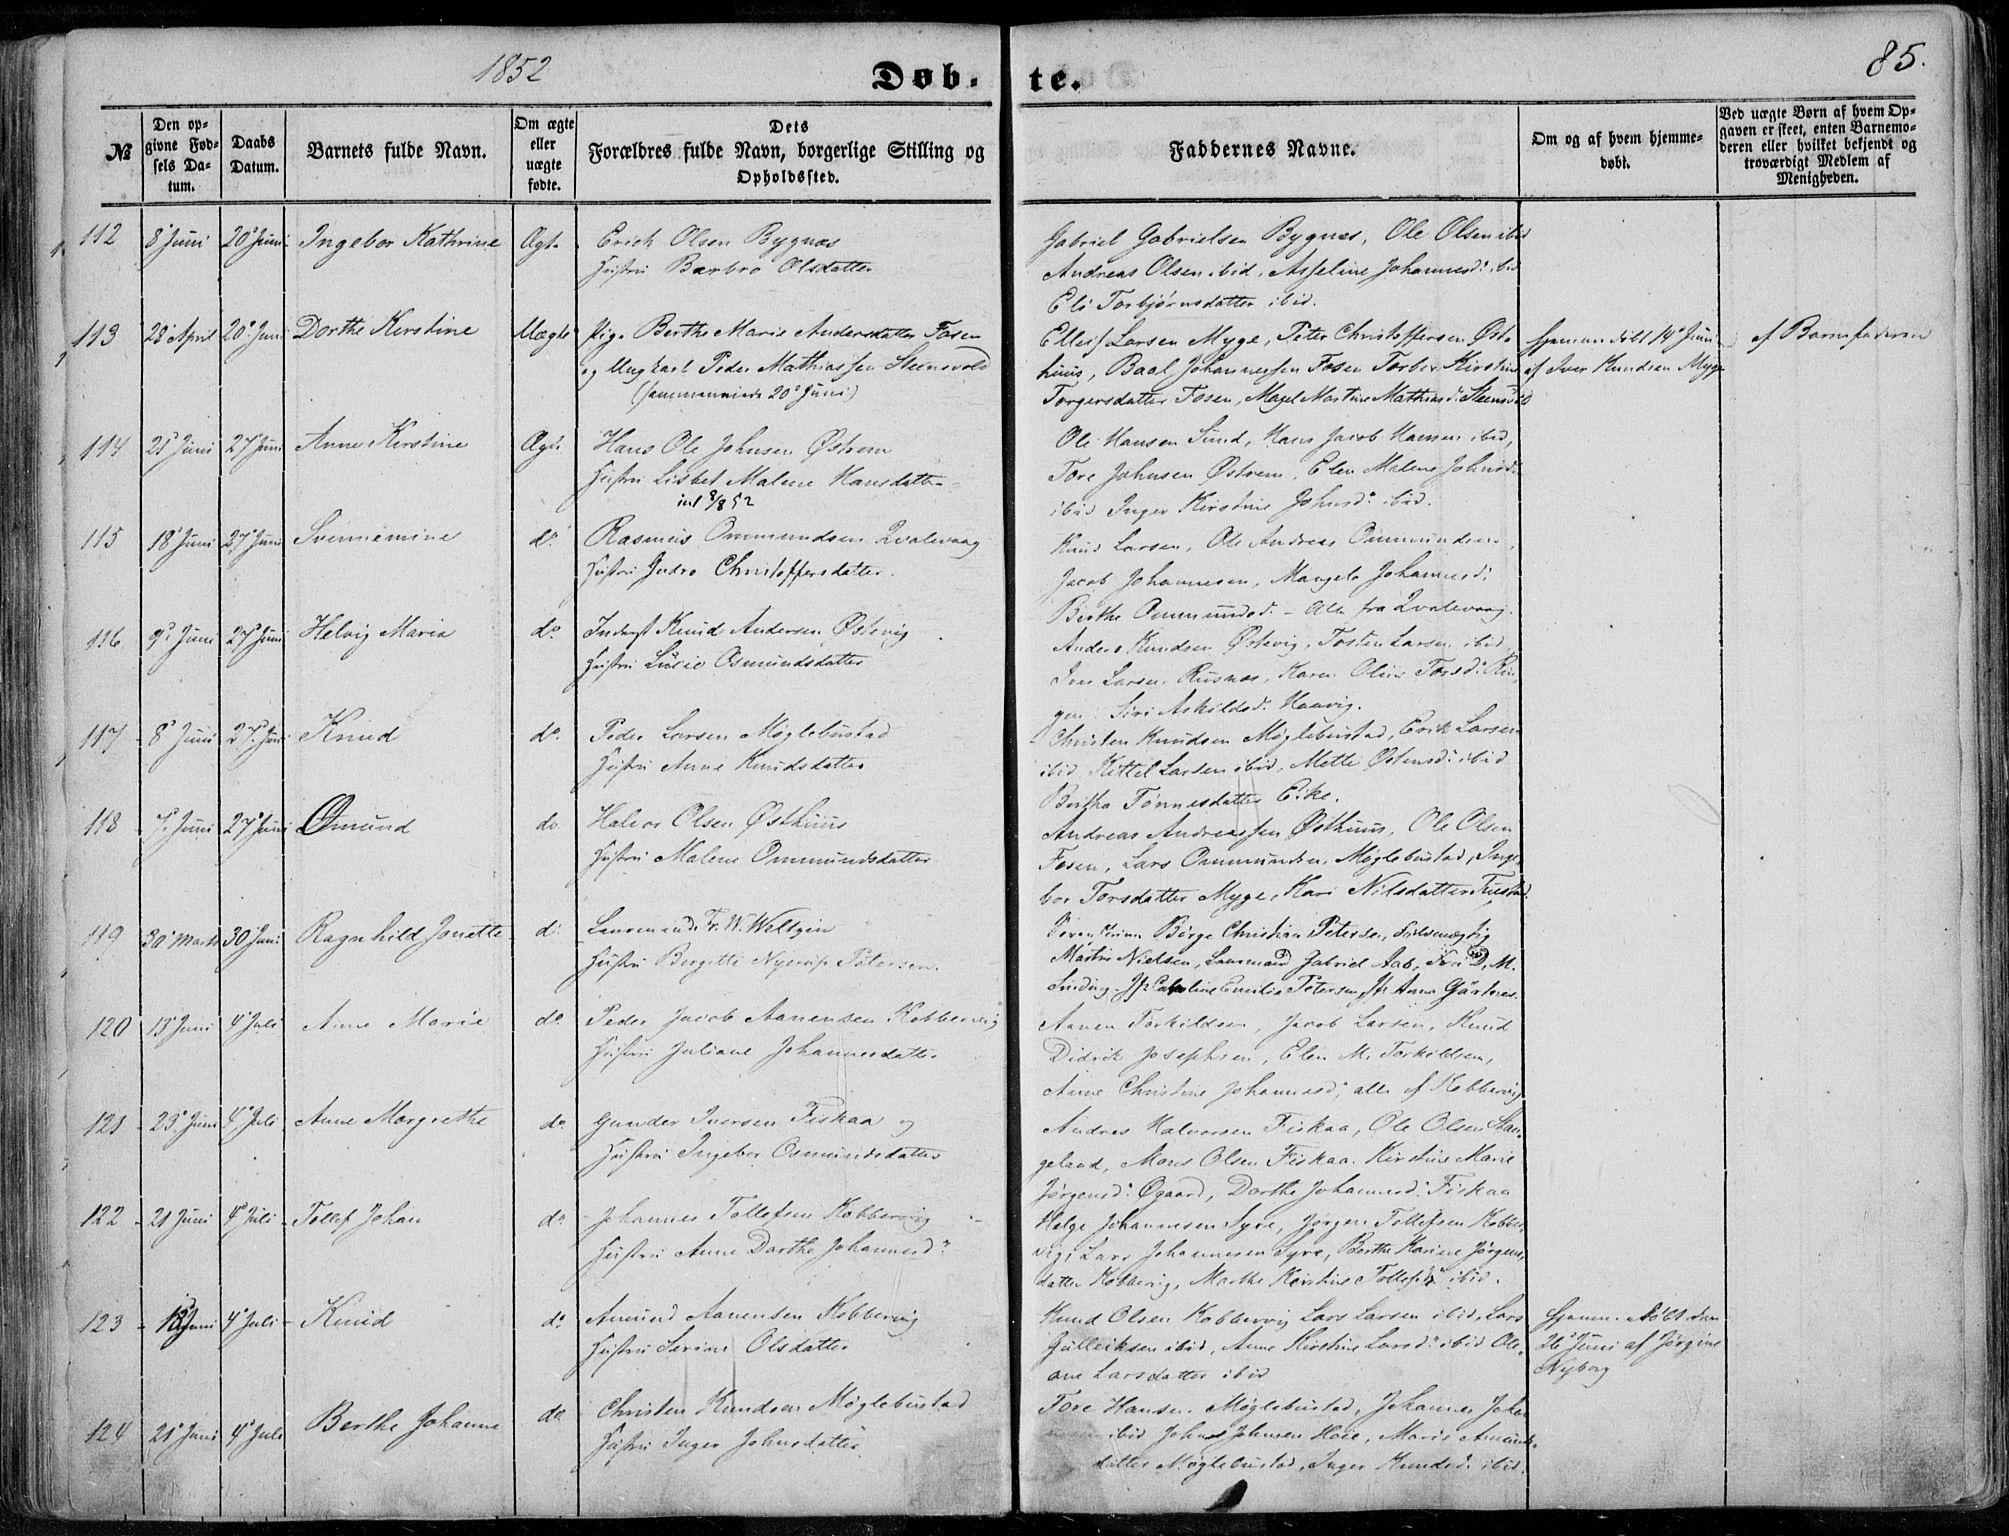 1852
Døb-te.
85.
№
Den op-
givne Fød-
sels Da-
tum.
Daabs
Datum.
Barnets fulde Navn.
Om ægte
eller
uægte
fødte.
Dets
Forældres fulde Navn, borgerlige Stilling og
Opholdssted.
Faddernes Navne.
Om og af hvem hjemme-
døbt.
Ved uægte Børn af hvem Op-
gaven er skeet, enten Barnemo-
deren eller hvilket bekjendt og
troværdigt Medlem af
Menigheden.
112 8 Juni 20 Juni Ingebor Kathrine Ægte
Erich Olsen Bygnæs
Hustru Barbro Olsdatter
Gabriel Gabrielsen Bygnæs, Ole Olsen ibid
Andreas Olsen ibid, Asseline Johannesd: ibid
Eli Torbjørnsdatter ibid.
113 28 April 20 Juni Dorthe Kirstine Uægte
Pige Berthe Marie Andersdatter Fosen
og Ungkarl Peder Mathiassen Steensvold
(sammenviede 20 Juni)
Ellef Larsen Myge, Peter Christoffersen Øst-
huus, Baal Johannessen Fosen Torber Kirstine
Torgersdatter Fosen, Martine Mathiasd: Steensvold
hjemmedøbt 14 Juni
af Iver Knudsen Myge
af Barnefaderen
114 21 Juni 27 Juni Anne Kirstine Ægte
Hans Ole Johnsen Østrem
Hustru Lisbet Malene Hansdatter
int 8/8 52
Ole Hansen Sund, Hans Jacob Hansen ibid,
Tore Johnsen Østrem, Elen Malene Johnsd:
ibid Inger Kirstine Johnsd: ibid.
115 18 Juni 27 Juni Svenniemine do.
Rasmus Ommundsen Qvalevaag
Hustru Gudro Christoffersdatter.
Knud Larsen, Ole Andreas Ommundsen,
Jacob Johannesen, Mangela Johannesd:
Birthe Ommundsd. - Alle fra Qvalevaag.
116 9 Juni 27 Juni Helvig Maria do.
Inderst Knud Andersen Østevig
Hustru Lucie Osmundsdatter
Anders Knudsen Østevig, Tosten Larsen ibid
Iver Larsen Rusnæs, Karen Oline Torsd:
Siri Askildsd. Haavig.
117 8 Juni 27 Juni Knud do.
Peder Larsen Møglebustad
Hustru Anne Knudsdatter
Christen Knudsen Møglebustad, Erik Larsen
ibid, Kittel Larsen ibid, Mette Østensd: ibid
Bertha Tønnesdatter Eike.
118 7 Juni 27 Juni Omund do
Halvor Olsen Østhuus
Hustru Malene Ommundsdatter
Andreas Andreassen Østhuus, Ole Olsen
Fosen, Lars Ommundsen Møglebustad, Inge-
bor Torsdatter Myge, Kari Nilsdatter
119 30 Marts 30 Juni Ragnhild Jonette do.
Lensmand Fr. W. Weltzin
Hustru Birgitte Nyerup Petersen.
Børge Christian Petersen, Fuldmægtig
Martin Nielsen, Lensmand Gabriel Aab, D. M.
Sinding, Jfr Caroline Emilie Petersen, Jfr Anna Gärtner.
120 15 Juni 4 Juli Anne Marie do
Peder Jacob Aanensen Kobbervig
Hustru Juliane Johannesdatter
Aanen Torkildsen, Jacob Larsen, Knud
Didrik Josephsen, Elen M. Torkildsen,
Anne Christine Johannesd: alle af Kobbervig
121 23 Juni 4 Juli Anne Margrethe do
Gunder Iversen Fiskaa og
Hustru Ingebor Osmundsdatter
Andres Halvorsen Fiskaa, Ole Olsen Stan-
geland, Mons Olsen Fiskaa. Kirstine Marie
Jørgensd: Øgaard, Dorthe Johannesd: Fiskaa
122 21 Juni 4 Juli Tollef Johan do
Johannes Tollefsen Kobbervig
Hustru Anne Dorthe Johannesd:
Helge Johannesen Syre, Jørgen Tollefsen Kobber-
vig, Lars Johannesen Syre, Berthe Karine Jørgens-
datter Kobbervig, Marthe Kirstine Tollefsd: ibid.
123 13 Juni 4 Juli Knud do.
Amund Aanensen Kobbervig
Hustru Serine Olsdatter
Knud Olsen Kobbervig Lars Larsen ibid, Lars
Gulleiksen ibid, Anne Kirstine Larsd: ibid Ole-
ane Larsdatter ibid
hjemmedøbt den
26 Juni af Jørgine
Nyborg
124 21 Juni 4 Juli Berthe Johanne do
Christen Knudsen Møglebustad
Hustru Inger Johnsdatter
Tore Hansen Møglebustad, Johannes Johan-
ibid John Johnsen Hoie, Maris Amunds-
datter Møglebustad, Inger Knudsd: ibid.